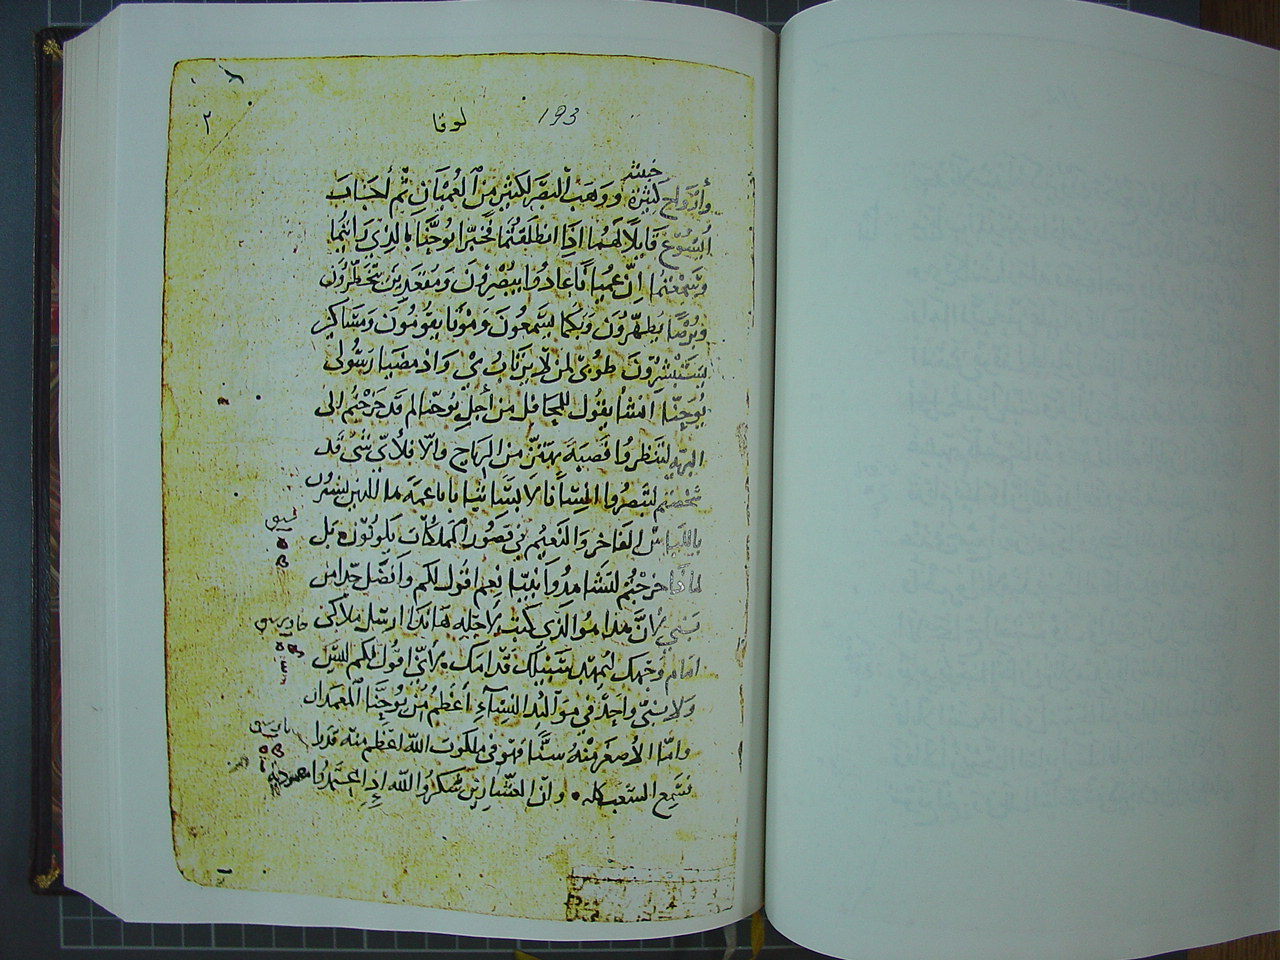 193
لوقا
٢
خبيثة
وأرواح كثيرة ووهب البصر لكثير من العميان ثم أجاب
اليسوع قايلا لهما اذا انطلقتما فخبرا يوحنا بالذي رأيتما
وسمعتما إن عميانا عادوا يبصرون ومقعدين يتخطرون
وبرصا يطهرون وبكما يسمعون وموتا يقومون ومساكين
يستبشرون طوبى لمن لم يرتاب بي واذ مضيا رسولي
يوحنا انشا يقول للمحافل من أجل يوحنا لم قد خرجتم الى
البريه لتنظروا قصبة تهتز من الرياح والا فلأي شي قد
شخصتم لتبصروا انسانا لابسا ثيابا ناعمة ها اللذين
باللباس الفاخر والنعيم في قصور المملكات يكونون بل
لماذا خرجتم لتشاهدوا نبيا نعم اقول لكم وافضل جدا من
نبي لأن هذا هو الذي كتب لأجله هانذا ارسل ملاكي
امام وجهك ليمهد سبيلك قدامك لأني اقول لكم ليس
ولا نبي واحد في مواليد النساء أعظم من يوحنا المعمدان
واما الأصغر منه سنا فهو في ملكوت الله اعظم منه
فسمع الشعب كله وان العشارين شكروا الله إذ اعتمدوا